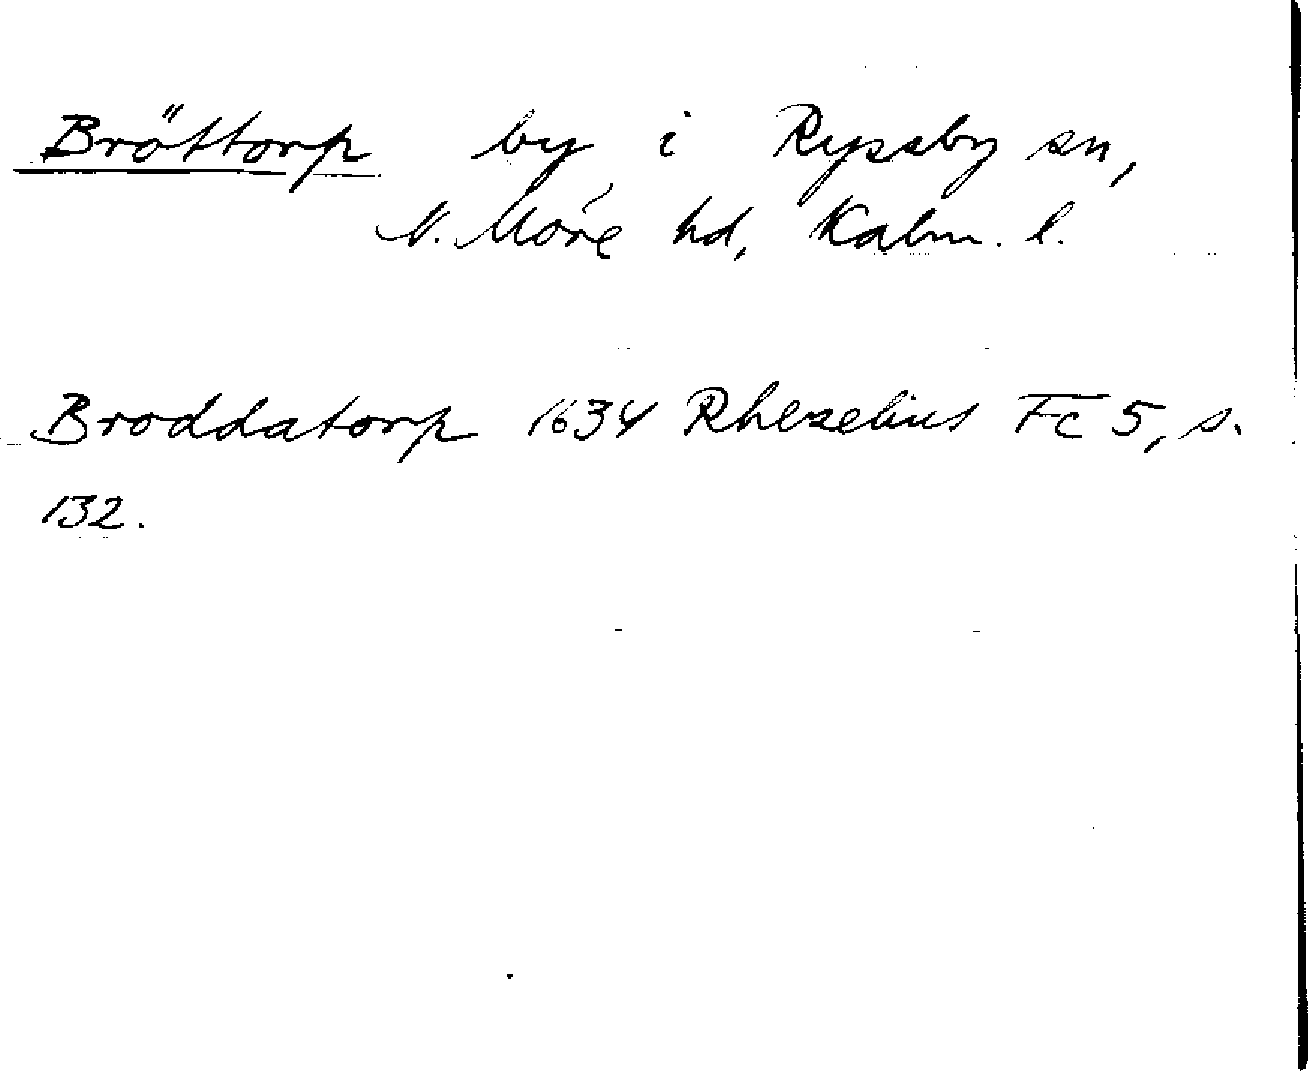 Bröttorp by i Ryssby sn,
N. Möre hd, Kalm. l.
Broddatorp 1634 Rhezelius Fc 5, s.
132.